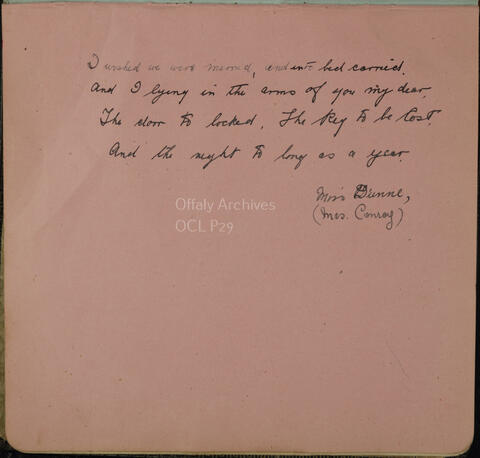 I wished we were married, and into bed carried.
And I lying in the arms of you my dear.
The door to locked, The Key to be lost.
And the night to long as a year.
Miss Dunne,
(Mrs. Conroy)
Offaly Archives
OCL P29